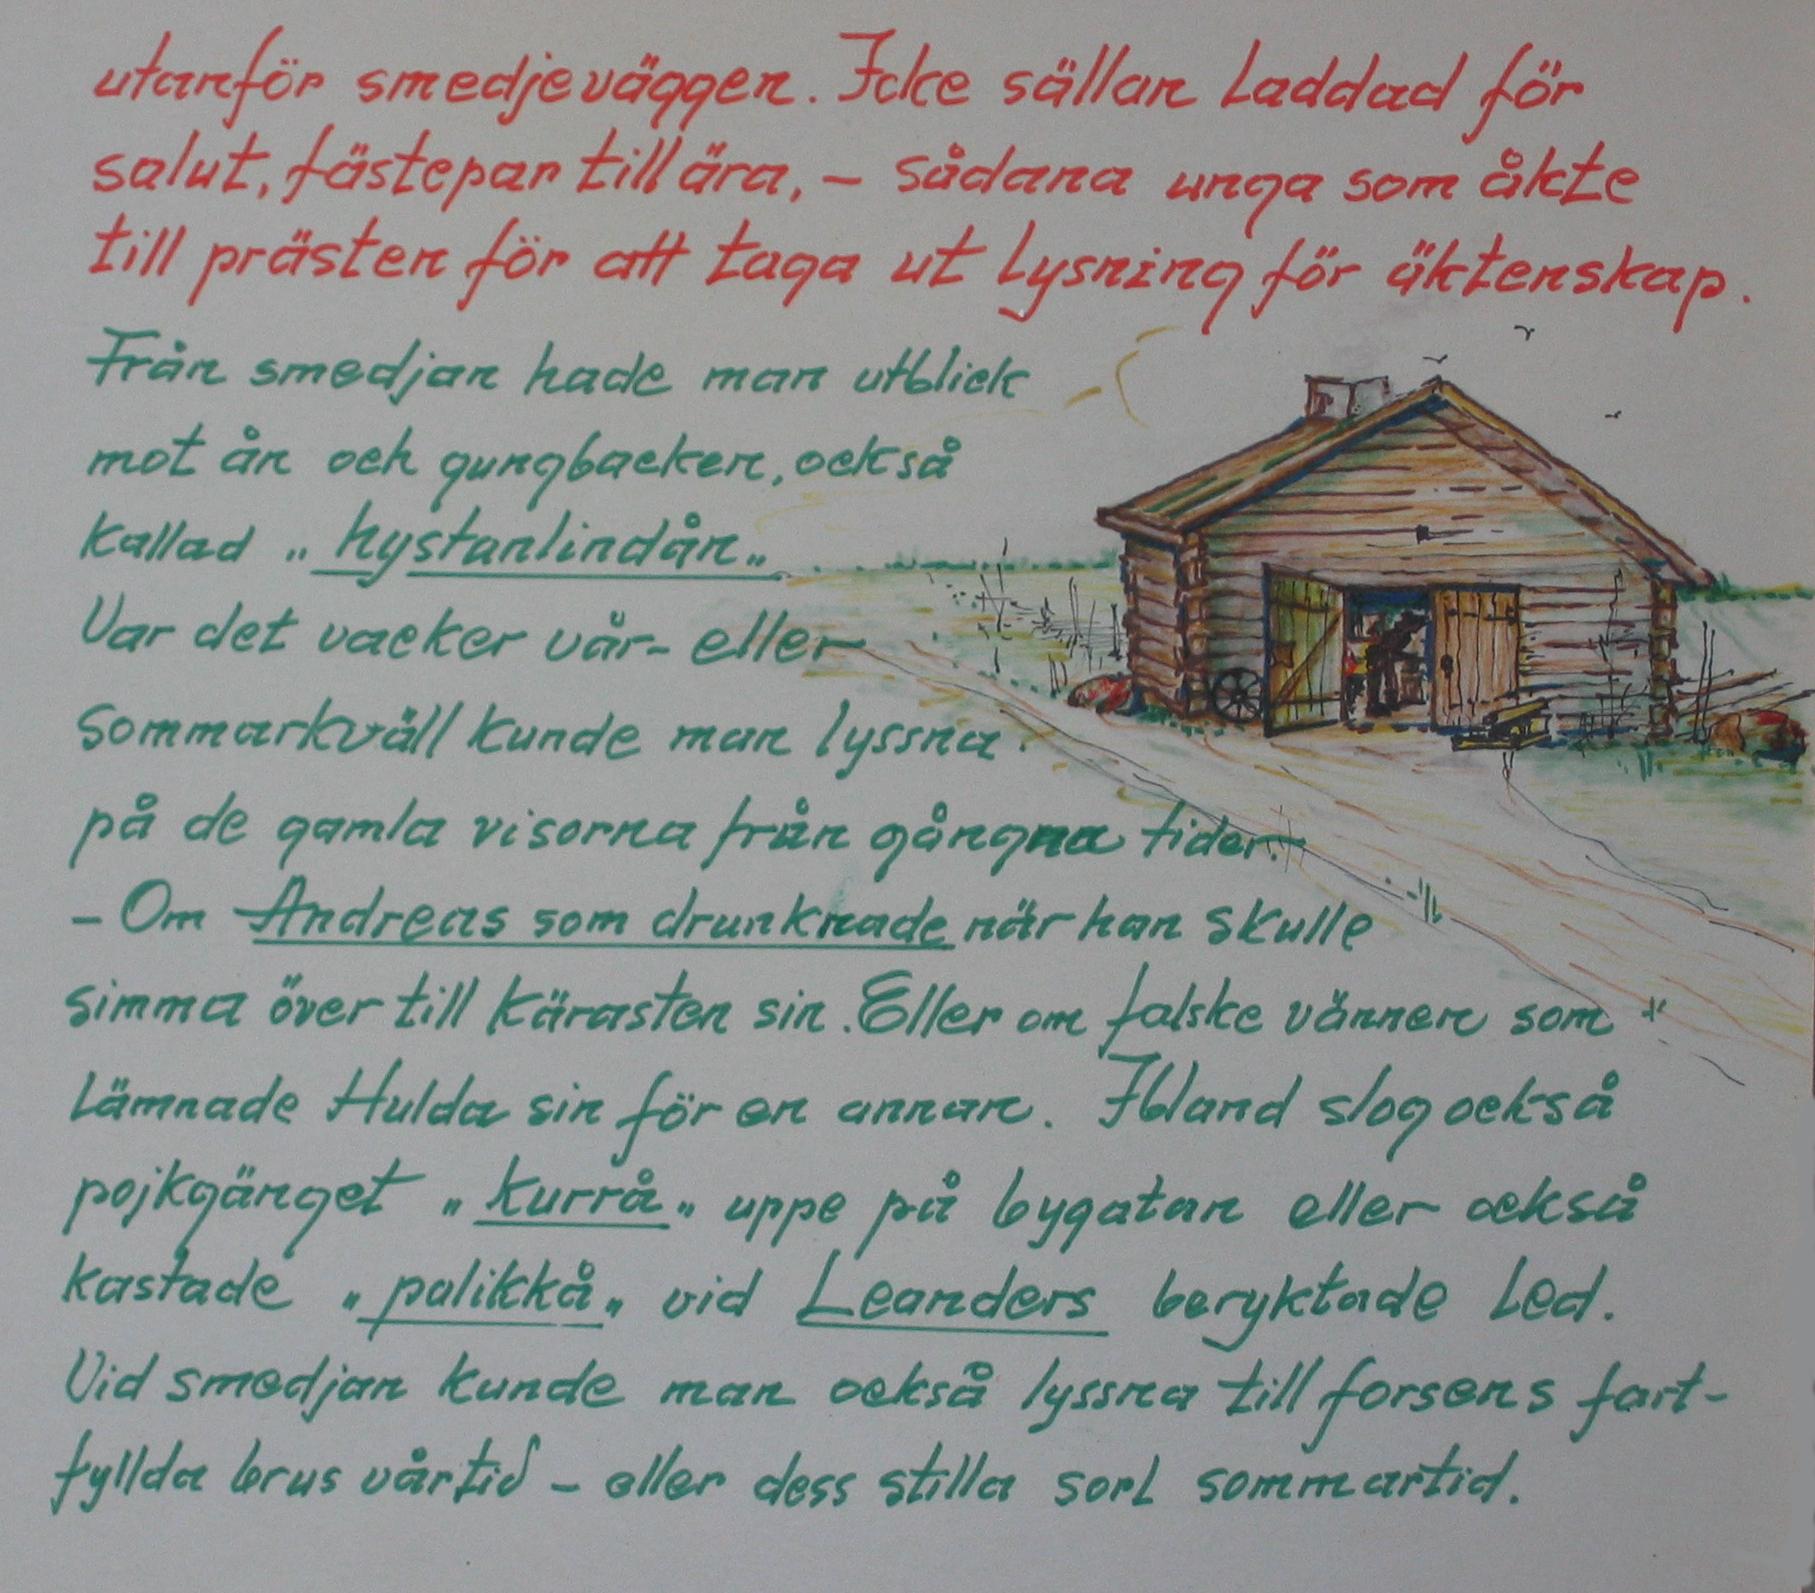 utanför smedjeväggen. Icke sällan laddad för
salut, fästepar till ära, – sådana unga som åkte
till prästen för att taga ut lysning för äktenskap.
Från smedjan hade man utblick
mot ån och gungbacken, också
kallad „hystanlindån„
Var det vacker vår- eller
sommarkväll kunde man lyssna
på de gamla visorna från gångna tider.
– Om Andreas som drunknade när han skulle
simma över till kärasten sin. Eller om falske vännen som
lämnade Hulda sin för en annan. Ibland slog också
pojkgänget „kurrå„ uppe på bygatan eller också
kastade „palikkå„ vid Leanders beryktade led.
Vid smedjan kunde man också lyssna till forsens fart-
fyllda brus vårtid – eller dess stilla sorl sommartid.